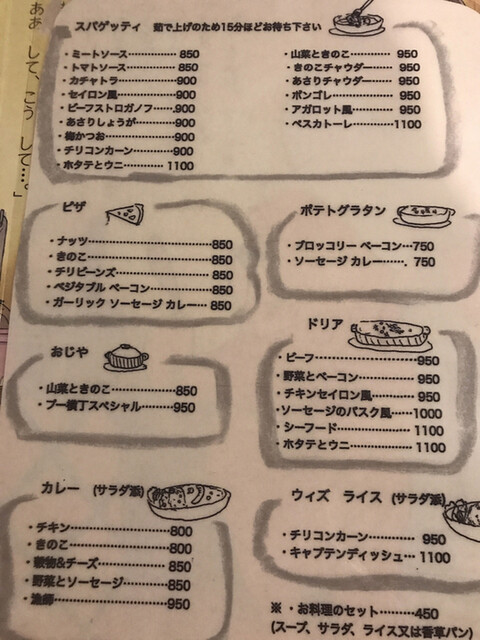 スパゲッティ　茹で上げのため15分ほどお待ち下さい
・ミートソース……………850
・トマトソース……………850
・カチャトラ………………900
・セイロン風………………900
・ビーフストロガノフ……900
・あさりしょうが…………900
・梅かつお…………………900
・チリコンカーン…………900
・ホタテとウニ……………1100
・山菜ときのこ……………950
・きのこチャウダー………950
・あさりチャウダー………950
・ボンゴレ…………………950
・アガロット風……………950
・ペスカトーレ……………1100
ピザ
・ナッツ……………………850
・きのこ……………………850
・チリビーンズ……………850
・ベジタブル ベーコン……850
・ガーリック ソーセージ カレー…850
ポテトグラタン
・ブロッコリー ベーコン…750
・ソーセージ カレー………750
おじや
・山菜ときのこ……………850
・プー横丁スペシャル……950
ドリア
・ビーフ……………………950
・野菜とベーコン…………950
・チキンセイロン風………950
・ソーセージのバスク風…1000
・シーフード………………1100
・ホタテとウニ……………1100
カレー　(サラダ添)
・チキン……………………800
・きのこ……………………800
・穀物&チーズ……………850
・野菜とソーセージ………850
・漁師………………………950
ウィズ　ライス　(サラダ添)
・チリコンカーン…………950
・キャプテンディッシュ…1100
※・お料理のセット………450
(スープ、サラダ、ライス又は香草パン)
ああ
して、こう
して…。」